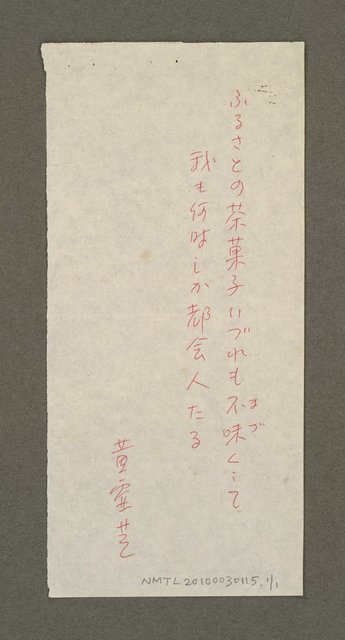 ふるさとの茶菓子いづれも不味くて
まづ
我も何時しか都会人たる
黄霊芝
NMTL20100030115.1/1